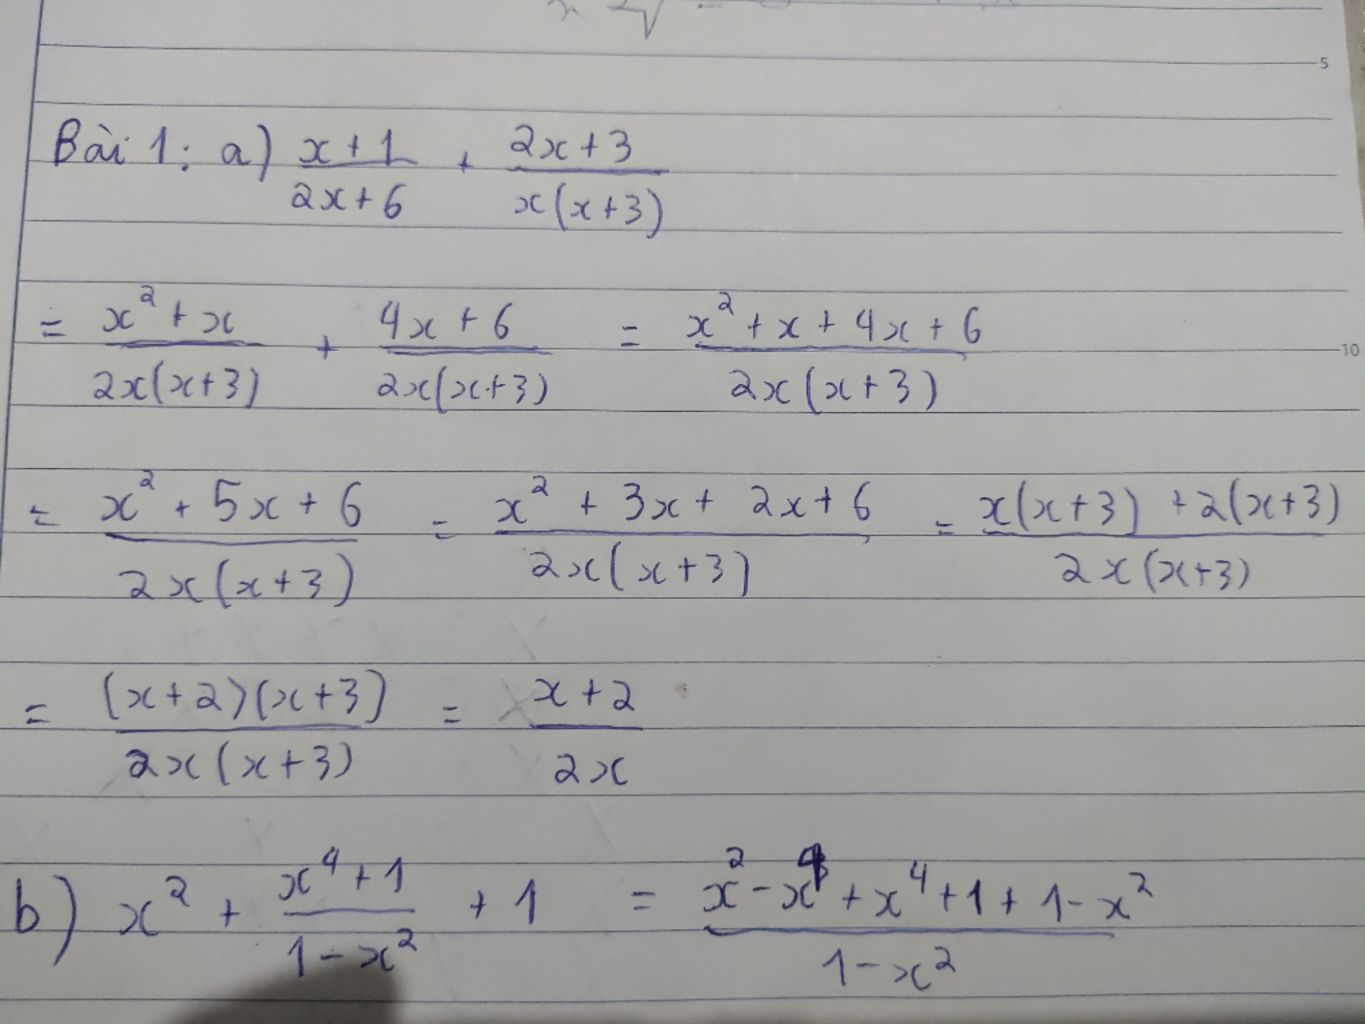 Bài 1: a) \frac{x+1}{2x+6} + \frac{2x+3}{x(x+3)}
= \frac{x^2+x}{2x(x+3)} + \frac{4x+6}{2x(x+3)} = \frac{x^2+x+4x+6}{2x(x+3)}
= \frac{x^2+5x+6}{2x(x+3)} = \frac{x^2+3x+2x+6}{2x(x+3)} = \frac{x(x+3)+2(x+3)}{2x(x+3)}
= \frac{(x+2)(x+3)}{2x(x+3)} = \frac{x+2}{2x}
b) x^2 + \frac{x^4+1}{1-x^2} + 1 = \frac{x^2-x^4+x^4+1+1-x^2}{1-x^2}
5
10